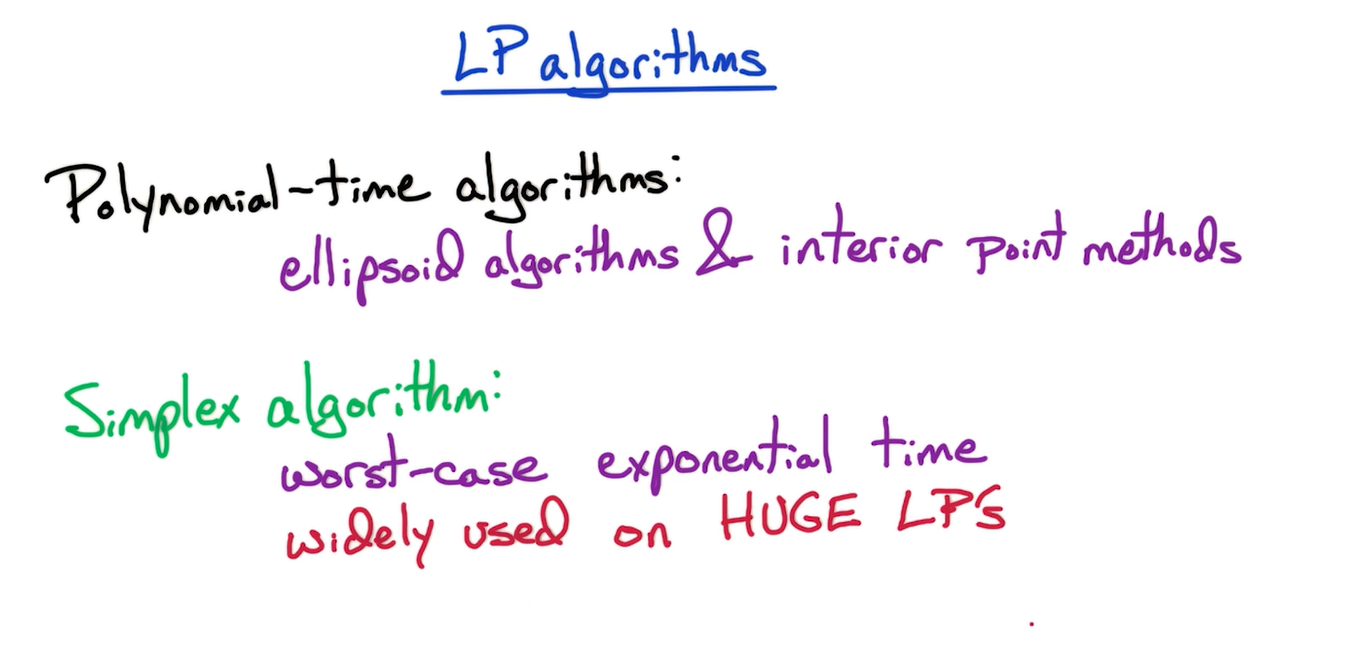 LP algorithms
Polynomial-time algorithms:
ellipsoid algorithms & interior point methods
Simplex algorithm:
worst-case exponential time
widely used on HUGE LPs